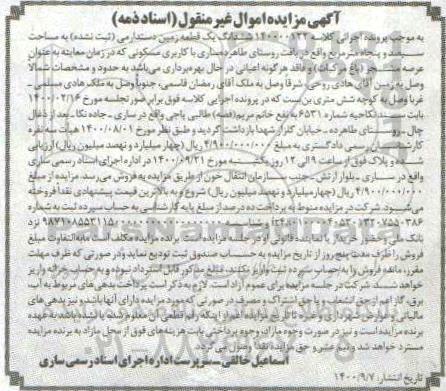 آگهی مزایده اموال غیر منقول (اسناد ذمه)
به موجب پرونده اجرایی کلاسه ۱۴۰۰۰۰۱۲۲ ششدانگ یک قطعه زمین دستدارمی (ثبت نشده) به مساحت
سیصد و پنجاه متر مربع واقع در بافت روستای طاهرده ساری با کاربری مسکونی که در زمان معاینه به عنوان
عرصه مشجر (باغ مرکبات) و فاقد هرگونه اعیانی در حال بهره‌برداری می‌باشد به حدود و مشخصات شمالا
وصل به زمین آقای هادی روحی، شرقا وصل به ملک آقای رمضان قاسمی، جنوبا وصل به ملک هادی مسلمی -
غربا وصل به کوچه شش متری بن بست که در پرونده اجرایی کلاسه فوق برابر صورتجلسه مورخ ۱۴۰۰/۰۲/۱۶
بابت مستند نکاحیه شماره ۶۵۳۱ به نفع خانم مریم (فضه) طالبی پاجی واقع در ساری - جاده نکا - بعد از ذغال
چال - روستای طاهرده - خیابان گلزار شهدا بازداشت گردید و طبق نظر مورخ ۱۴۰۰/۰۸/۰۱ هیات سه نفره
کارشناس رسمی دادگستری به مبلغ ۴/۹۰۰/۰۰۰/۰۰۰ ریال (چهار میلیارد و نهصد میلیون ریال) ارزیابی
شده و پلاک فوق از ساعت ۹ الی ۱۲ روز یکشنبه مورخ ۱۴۰۰/۰۹/۲۱ در اداره اجرای اسناد رسمی ساری
واقع در ساری - بلوار ارتش - جنب سازمان انتقال خون از طریق مزایده به فروش می‌رسد. مزایده از مبلغ
۴/۹۰۰/۰۰۰/۰۰۰ ریال (چهار میلیارد و نهصد میلیون ریال) شروع و به بالاترین قیمت پیشنهادی نقدا فروخته
می‌شود. شرکت در مزایده منوط به پرداخت ده درصد از مبلغ پایه کارشناسی به حساب سپرده ثبت به شماره
نزد
بانک ملی و حضور خریدار یا نماینده قانونی او در جلسه مزایده است. برنده مزایده مکلف است مابه‌التفاوت مبلغ
فروش را ظرف مدت پنج روز از تاریخ مزایده به حساب صندوق ثبت تودیع نماید و در صورتی که ظرف مهلت
مقرر، مانده فروش را به حساب سپرده ثبت واریز نکند، مبلغ مذکور قابل استرداد نبوده و به حساب خزانه واریز
خواهد شد. شرکت در جلسه مزایده برای عموم آزاد است. لازم به ذکر است پرداخت بدهی های مربوط به آب،
برق، گاز اعم از حق انشعاب و یا حق اشتراک و مصرف در صورتی که مورد مزایده دارای آنها باشد و نیز بدهی های
مالیاتی و عوارض شهرداری و غیره تا تاریخ مزایده اعم از اینکه رقم قطعی آن معلوم شده یا نشده باشد به عهده
برنده مزایده است و نیز در صورت وجود مازاد، وجوه پرداختی بابت هزینه های فوق از محل مازاد به برنده مزایده
مسترد خواهد شد و نیم عشر و حق مزایده نقدا وصول می گردد.
اسماعیل خالقی - سرپرست اداره اجرای اسناد رسمی ساری
تاریخ انتشار: ۱۴۰۰/۹/۷